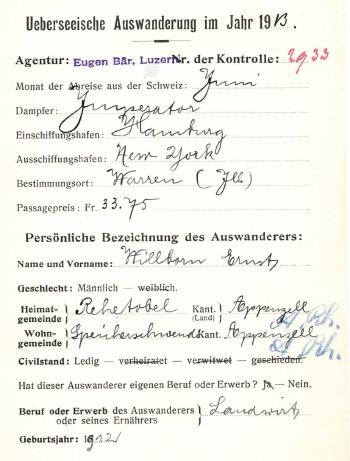 Ueberseeische Auswanderung im Jahr 1913.
Agentur: Eugen Bär, Luzern Nr. der Kontrolle: 2933
Monat der Abreise aus der Schweiz: Juni
Dampfer: Imperator
Einschiffungshafen: Hamburg
Ausschiffungshafen: New York
Bestimmungsort: Warren (Ill)
Passagepreis: Fr. 33.75
Persönliche Bezeichnung des Auswanderers:
Name und Vorname: Willborn Ernst
Geschlecht: Männlich — weiblich.
Heimatgemeinde } Rehetobel Kant. (Land) } Appenzell A/Rh.
Wohngemeinde } Speicherschwendi Kant. Appenzell A/Rh.
Civilstand: Ledig — verheiratet — verwitwet — geschieden.
Hat dieser Auswanderer eigenen Beruf oder Erwerb? Ja, — Nein.
Beruf oder Erwerb des Auswanderers oder seines Ernährers } Landwirt
Geburtsjahr: 1912